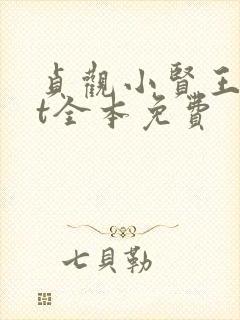 貞觀小賢王
t全本免費
七貝勒